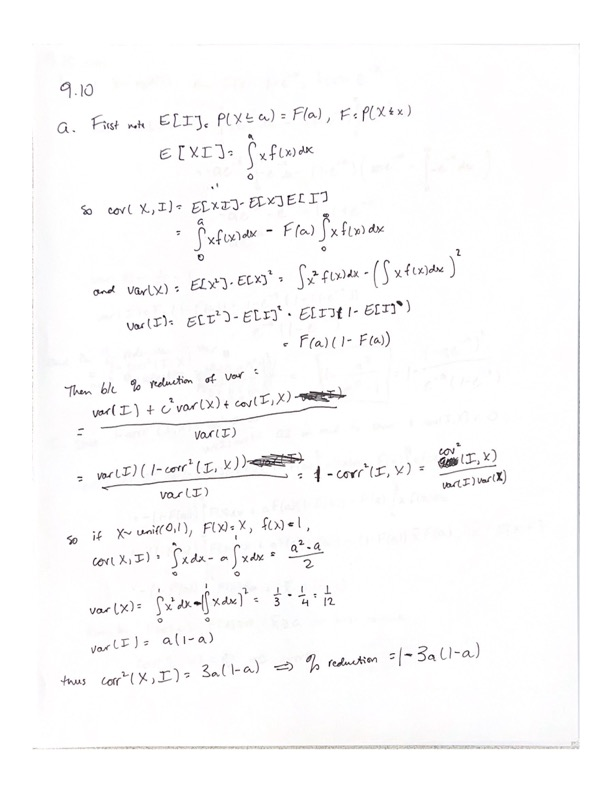 9.10
a. First note E[I] = P(X ≤ a) = F(a), F = P(X ≤ x)
E[XI] = ∫₀ᵃ x f(x) dx
So cov(X, I) = E[XI] - E[X]E[I]
= ∫₀ᵃ x f(x) dx - F(a) ∫₀^∞ x f(x) dx
and var(X) = E[X²] - E[X]² = ∫ x² f(x) dx - (∫ x f(x) dx)²
var(I) = E[I²] - E[I]² = E[I](1 - E[I])
= F(a)(1 - F(a))
Then b/c % reduction of var =
= (var(I) + c² var(X) + cov(I, X)) / var(I)
= var(I)(1 - corr²(I, X)) / var(I) = 1 - corr²(I, X) = cov²(I, X) / var(I) var(X)
So if X ~ unif(0,1), F(X) = X, f(x) = 1,
cov(X, I) = ∫₀ᵃ x dx - a ∫₀¹ x dx = (a² - a) / 2
var(X) = ∫₀¹ x² dx - (∫₀¹ x dx)² = 1/3 - 1/4 = 1/12
var(I) = a(1-a)
thus corr²(X, I) = 3a(1-a) ⇒ % reduction = 1 - 3a(1-a)